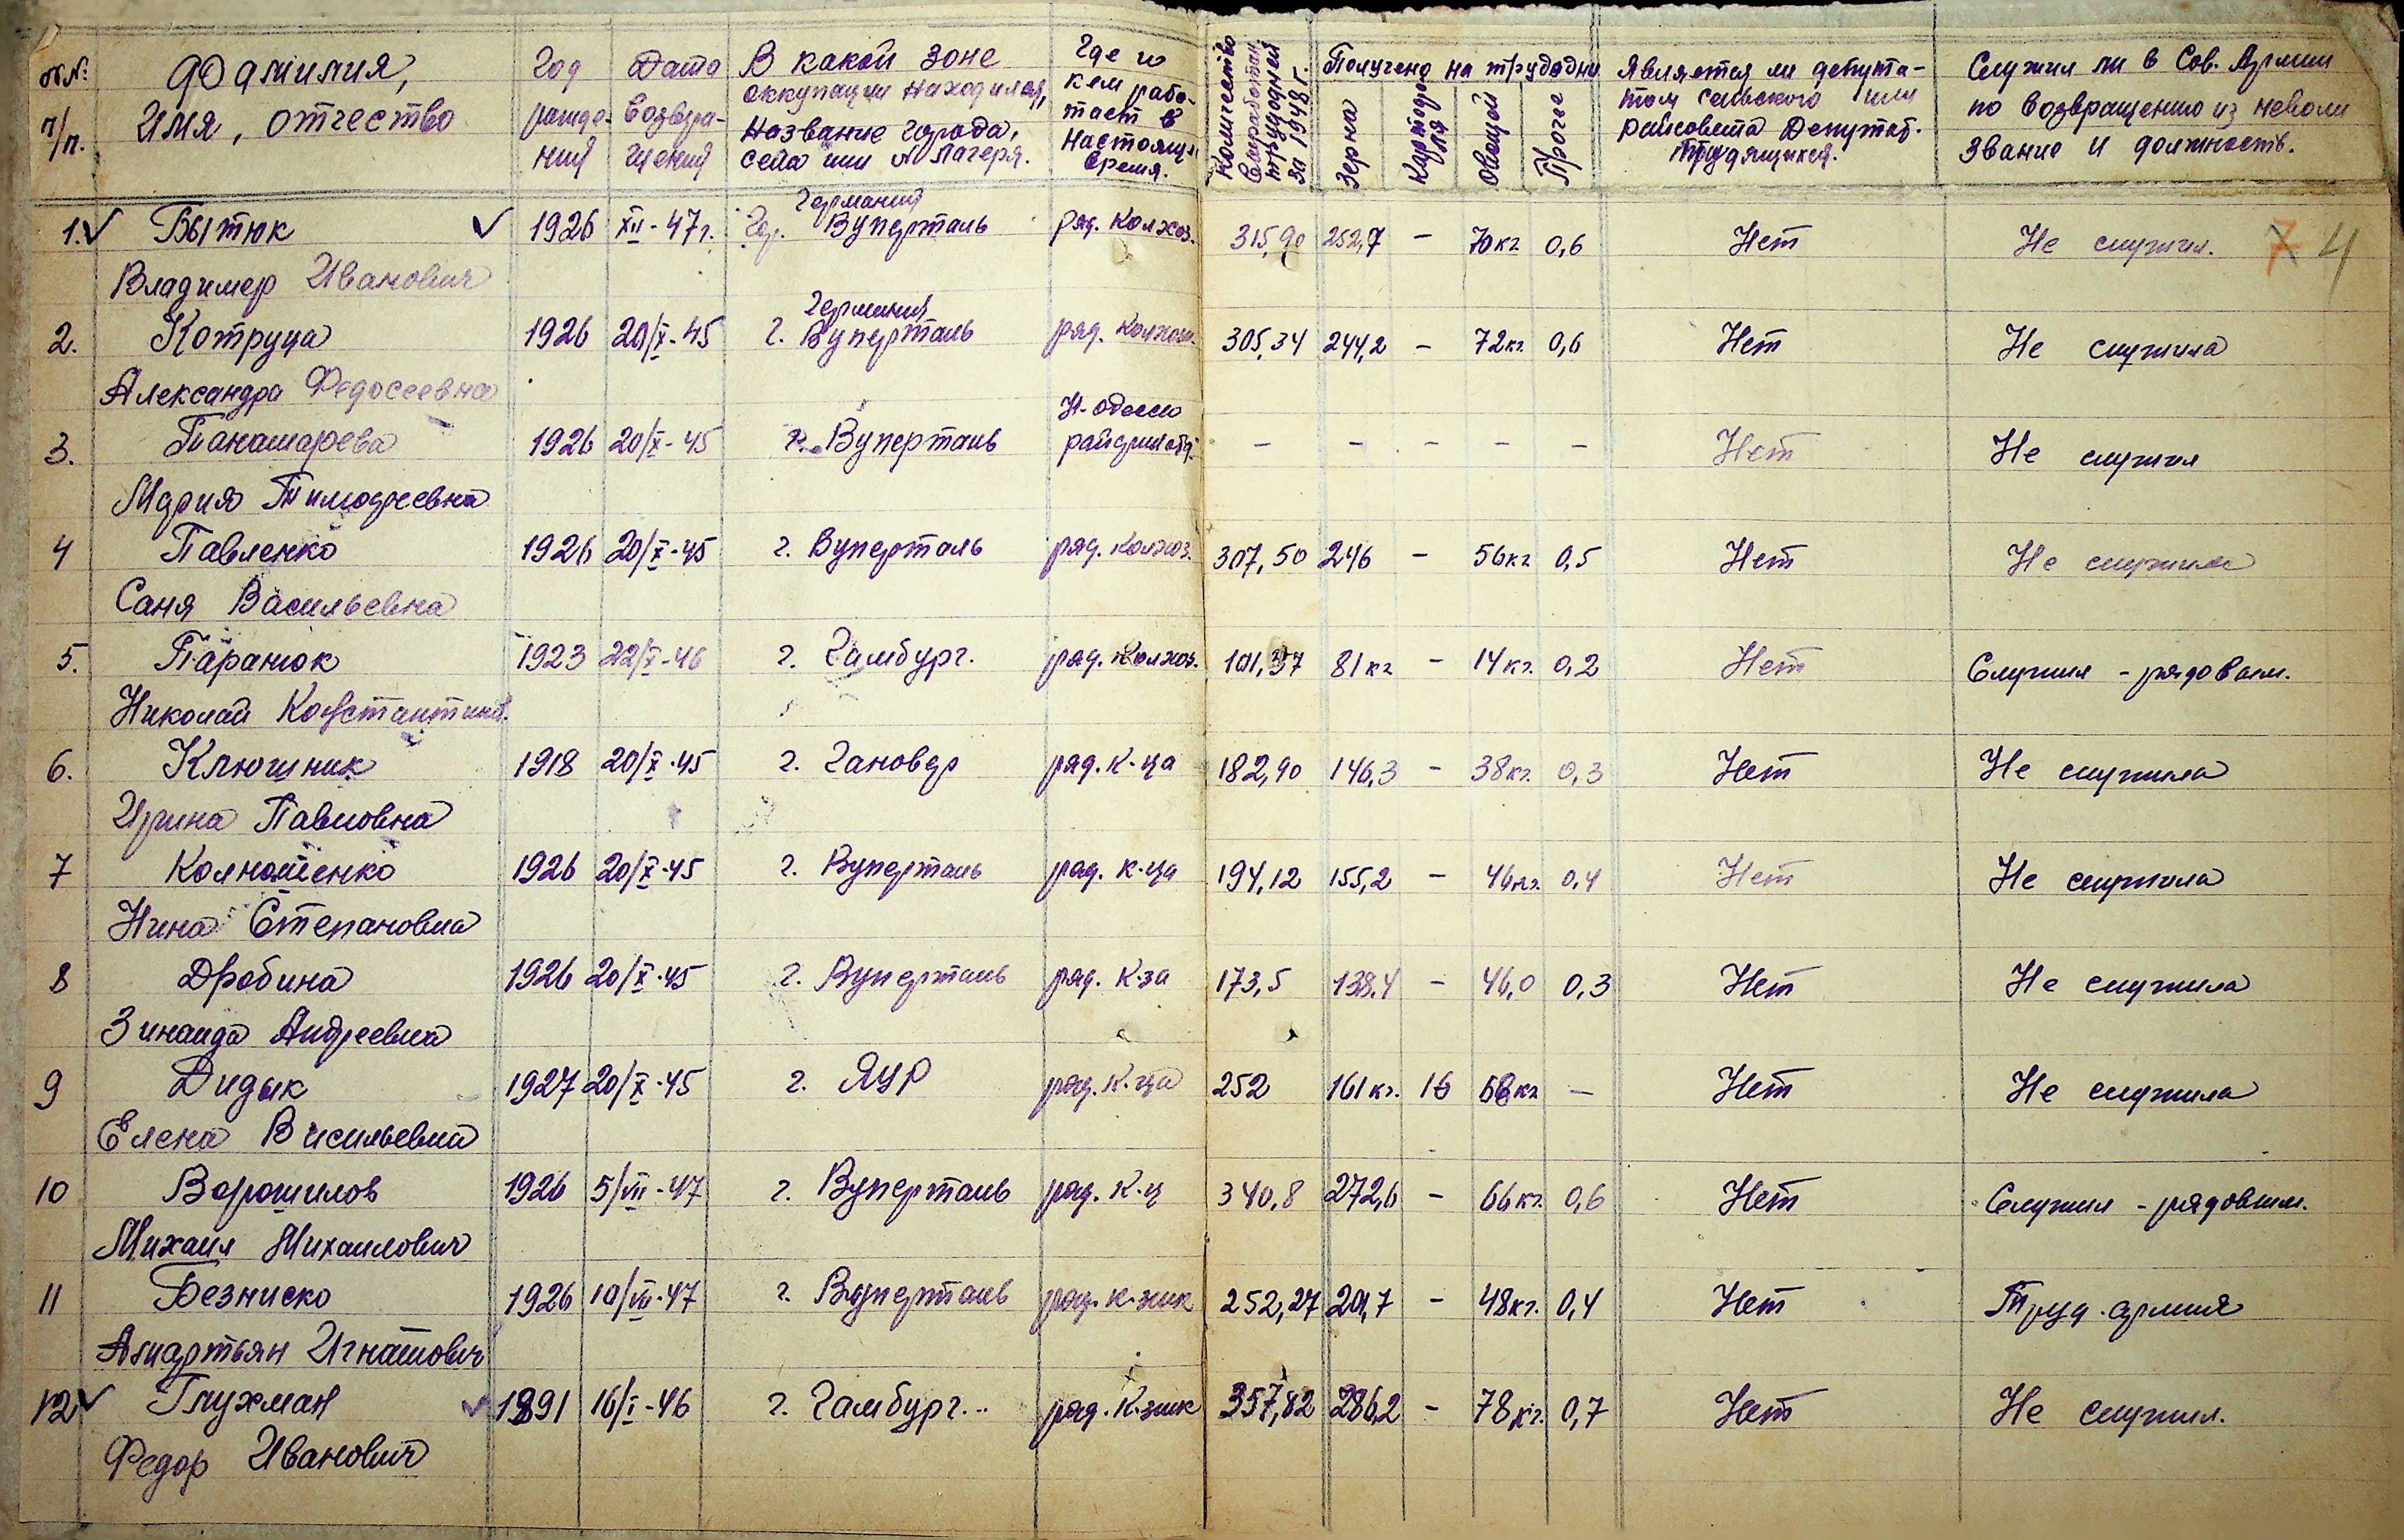 №№ п/п.
Фамилия,
Имя, отчество
Год рождения
Дата возвращения
В какой зоне
оккупации находился,
название города,
села или № лагеря.
Где и
кем рабо-
тает в
настоящ.
время.
Количество
выработан.
трудодней
за 1948 г.
Получено на трудодни
Зерна
Картофеля
Овощей
Прочее
Является ли депута-
том сельского или
райсовета Депутат.
трудящихся.
Служил ли в Сов. Армии
по возвращению из неволи
звание и должность.
Германия
1. Бытюк 1926 XII-47г. Гор. Вуперталь ряд. колхоз. 315,90 252,7 - 70кг 0,6 Нет Не служил. 7 4
Владимер Иванович
Германия
2. Котруца 1926 20/X-45 г. Вуперталь ряд. колхоз. 305,34 244,2 - 72кг 0,6 Нет Не служила
Александра Федосеевна
Н-Одесса
3. Танашарева 1926 20/X-45 г. Вуперталь райфинотд. - - - - - Нет Не служил
Мария Тимофеевна
4 Павленко 1926 20/X-45 г. Вуперталь ряд. колхоз. 307,50 246 - 56кг 0,5 Нет Не служила
Саня Васильевна
5. Паранюк 1923 22/X-46 г. Гамбург. ряд. колхоз. 101,37 81кг - 14кг. 0,2 Нет Служил - рядовым.
Николай Константинов.
6. Ключник 1918 20/X-45 г. Гановер ряд. к-ца 182,90 146,3 - 38кг. 0,3 Нет Не служила
Ирина Павловна
7 Колношенко 1926 20/X-45 г. Вуперталь ряд. к-ца 194,12 155,2 - 46кг. 0,4 Нет Не служила
Нина Степановна
8 Дробина 1926 20/X-45 г. Вуперталь ряд. к-за 173,5 138,4 - 46,0 0,3 Нет Не служила
Зинаида Андреевна
9 Дидык 1927 20/X-45 г. Яур ряд. к-ца 252 161кг. 16 68кг - Нет Не служила
Елена Васильевна
10 Ворошилов 1926 5/VII-47 г. Вуперталь ряд. к-ц 340,8 272,6 - 66кг. 0,6 Нет Служил - рядовым.
Михаил Михаилович
11 Безниско 1926 10/VII-47 г. Вуперталь ряд. к-ник 252,27 201,7 - 48кг. 0,4 Нет Труд. армия
Игнатович
12 Глухман 1891 16/I-46 г. Гамбург. ряд. к-зник 357,82 286,2 - 78кг. 0,7 Нет Не служил.
Федор Иванович